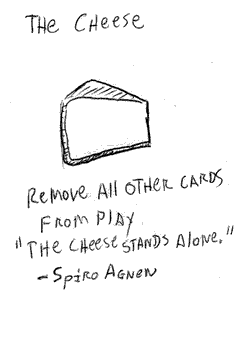 THE CHEESE
REMOVE ALL OTHER CARDS
FROM PLAY
"THE CHEESE STANDS ALONE."
-SPIRO AGNEW